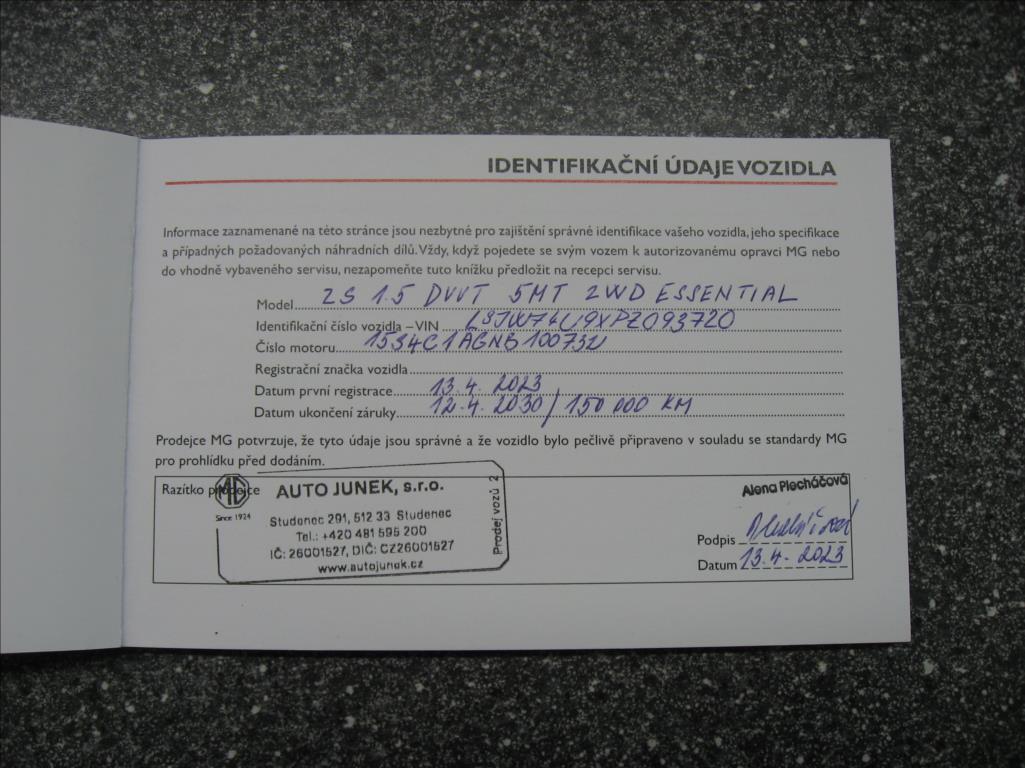 IDENTIFIKAČNÍ ÚDAJE VOZIDLA
Informace zaznamenané na této stránce jsou nezbytné pro zajištění správné identifikace vašeho vozidla, jeho specifikace
a případných požadovaných náhradních dílů. Vždy, když pojedete se svým vozem k autorizovanému opravci MG nebo
do vhodně vybaveného servisu, nezapomeňte tuto knížku předložit na recepci servisu.
Model ZS 1.5 DVVT 5MT 2WD ESSENTIAL
Identifikační číslo vozidla – VIN LSJW74U9XPZ093720
Číslo motoru
Registrační značka vozidla
Datum první registrace 13.4. 2023
Datum ukončení záruky 12.4. 2030 / 150 000 KM
Prodejce MG potvrzuje, že tyto údaje jsou správné a že vozidlo bylo pečlivě připraveno v souladu se standardy MG
pro prohlídku před dodáním.
Razítko prodejce
MG
Since 1924
AUTO JUNEK, s.r.o.
Studenec 291, 512 33 Studenec
Tel.: +420 481 595 200
IČ: 26001527, DIČ: CZ26001527
www.autojunek.cz
Prodej vozů 2
Alena Plecháčová
Podpis
Datum 13.4. 2023